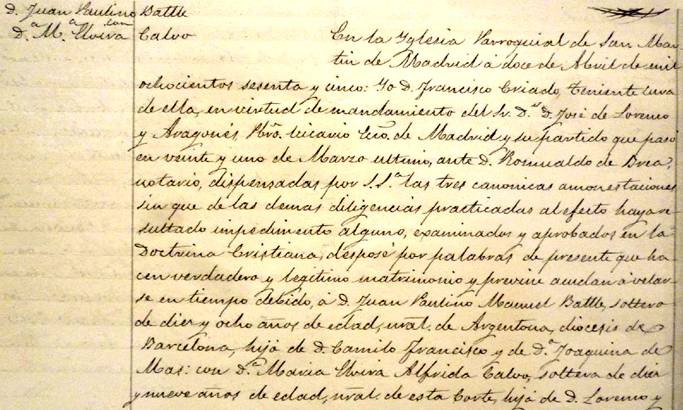 D. Juan Paulino Battle
con
D.ª M.ª Elvira Calvo
En la Yglesia Parroquial de San Mar-
tin de Madrid á doce de Abril de mil
ochocientos sesenta y cinco: Yo D. Francisco Criado, Teniente Cura
de ella, en virtud de mandamiento del Sr. D.r D. José de Lorenzo
y Aragonés Pbro. Vicario Ecco. de Madrid y su partido que pasó
en veinte y uno de Marzo ultimo, ante D. Romualdo de Brea,
notario, dispensadas por S.S.ª las tres canonicas amonestaciones
sin que de las demas diligencias practicadas al efecto haya re-
sultado impedimento alguno, examinados y aprobados en la
Doctrina Cristiana, desposé por palabras de presente que ha-
cen verdadero y legitimo matrimonio y previne acudan á velar-
se en tiempo debido, á D. Juan Paulino Manuel Battle, soltero
de diez y ocho años de edad, nat. de Argentona, diocesis de
Barcelona, hijo de D. Camilo Francisco y de D.ª Joaquina de
Mas: con D.ª Maria Elvira Alfrida Calvo, soltera de diez
y nueve años de edad, nat. de esta Corte, hija de D. Lorenzo y